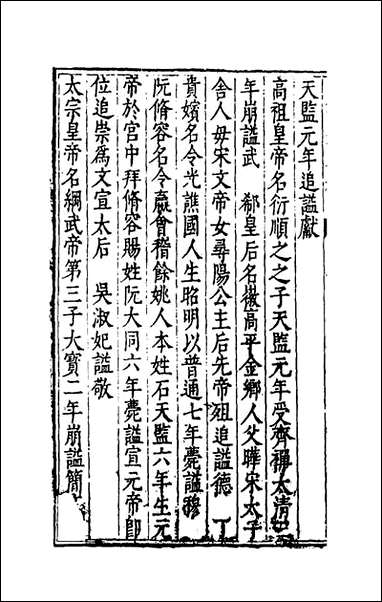 天監元年追謚獻
高祖皇帝名衍順之之子天監元年受齊禪太清
年崩謚武　郗皇后名徽高平金鄉人父曄宋太子
舍人母宋文帝女尋陽公主后先帝殂追謚德　丁
貴嬪名令光譙國人生昭明以普通七年薨謚穆
阮脩容名令嬴會稽餘姚人本姓石天監六年生元
帝於宮中拜脩容賜姓阮大同六年薨謚宣元帝即
位追崇爲文宣太后　吳淑妃謚敬
太宗皇帝名綱武帝第三子大寶二年崩謚簡